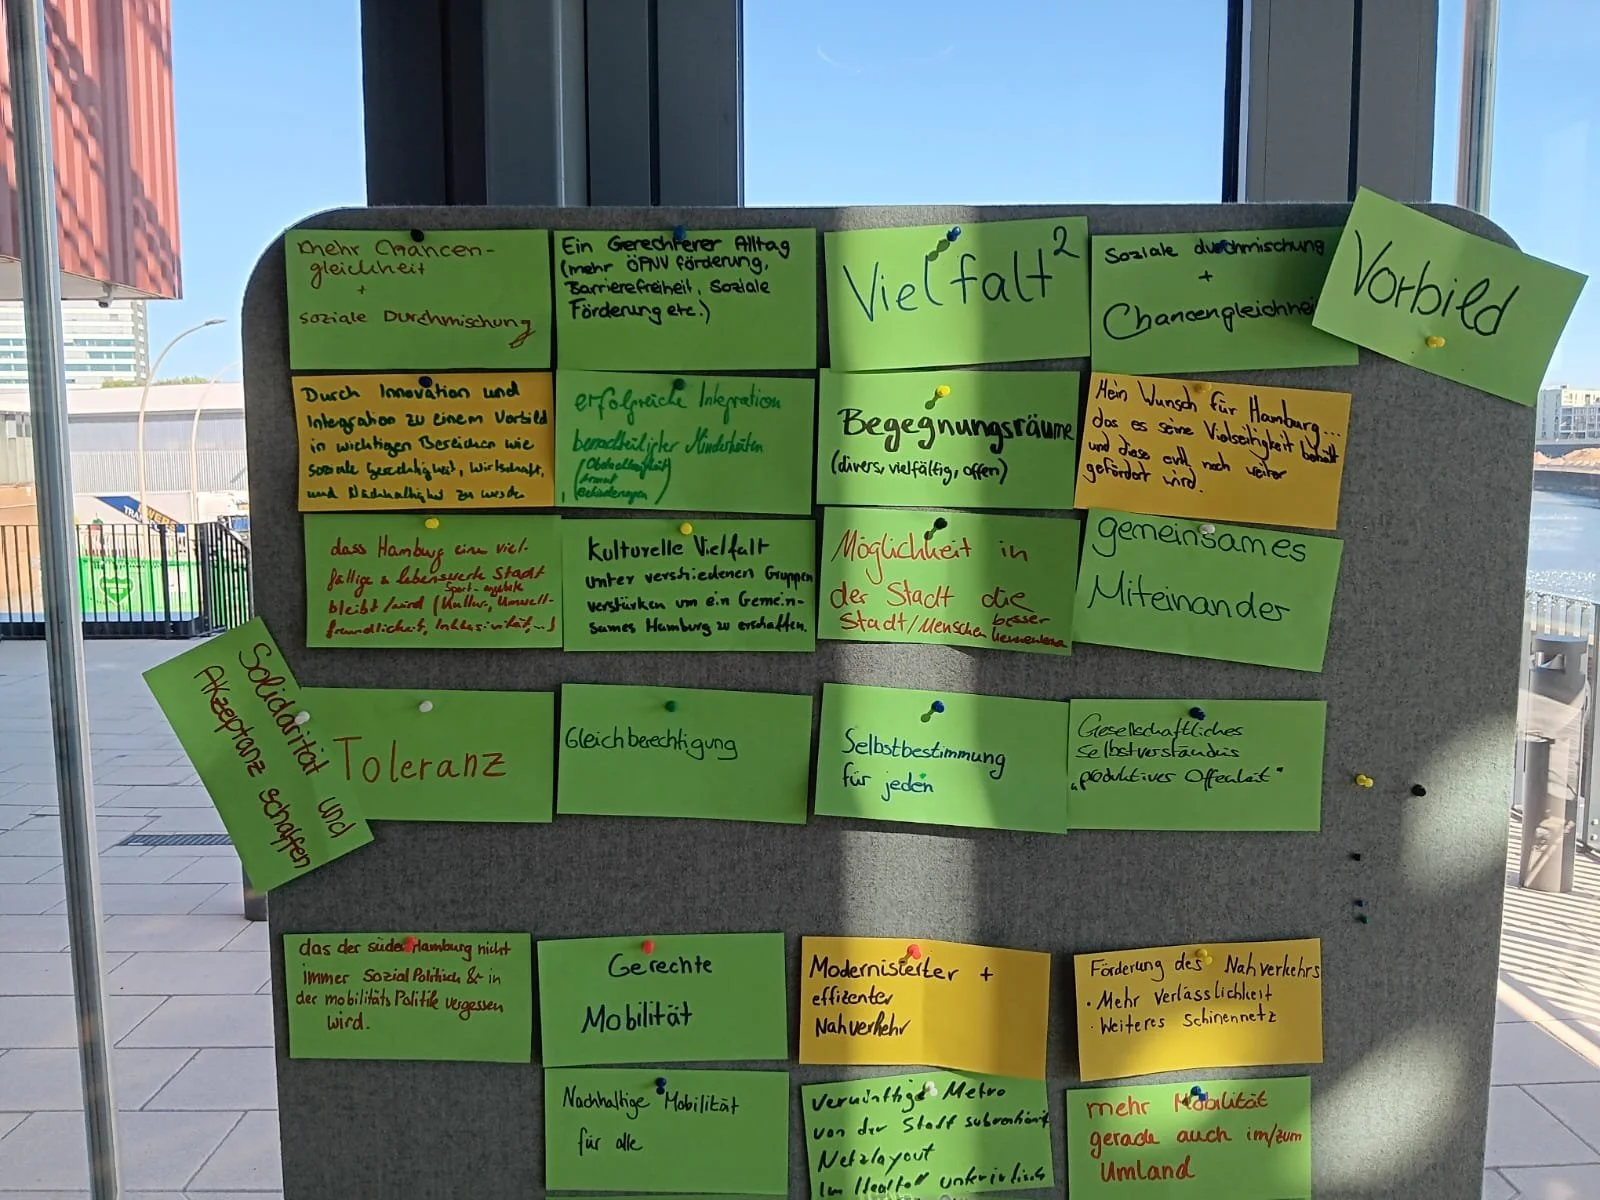 mehr Chancen-
gleichheit
+
soziale Durchmischung
Ein Gerechterer Alltag
(mehr ÖPNV förderung,
Barrierefreiheit, Soziale
Förderung etc.)
Vielfalt²
Soziale durchmischung
+
Chancengleichhei
Vorbild
Durch Innovation und
Integration zu einem Vorbild
in wichtigen Bereichen wie
soziale Gerechtigkeit, Wirtschaft,
und Nachhaltigkeit zu werden
erfolgreiche Integration
benachteiligter Minderheiten
(Obdachlosigkeit
Armut
Behinderungen)
Begegnungsräume
(divers, vielfältig, offen)
Mein Wunsch für Hamburg...
das es seine Vielseitigkeit behält
und diese evtl. noch weiter
gefördert wird.
dass Hamburg eine viel-
fältige & lebenswerte Stadt
bleibt/wird (Kultur, Sport-angebote Umwelt-
freundlichkeit, Inklusivität,...)
Kulturelle Vielfalt
unter verschiedenen Gruppen
verstärken um ein Gemein-
sames Hamburg zu erschaffen.
Möglichkeit in
der Stadt die
Stadt/Menschen besser
kennenlernen
gemeinsames
Miteinander
Solidarität und
Akzeptanz schaffen
Toleranz
Gleichberechtigung
Selbstbestimmung
für jeden
Gesellschaftliches
Selbstverständnis
„poduktives Offenheit"
das der süden Hamburg nicht
immer Sozial Politisch & in
der mobilitäts Politik vergessen
wird.
Gerechte
Mobilität
Modernisierter +
effizenter
Nahverkehr
Förderung des Nahverkehrs
· Mehr Verlässlichkeit
· Weiteres Schinennetz
Nachhaltige Mobilität
für alle
vernünftige Metro
von der Stadt
Netzlayout
mehr Mobilität
gerade auch im/zum
Umland